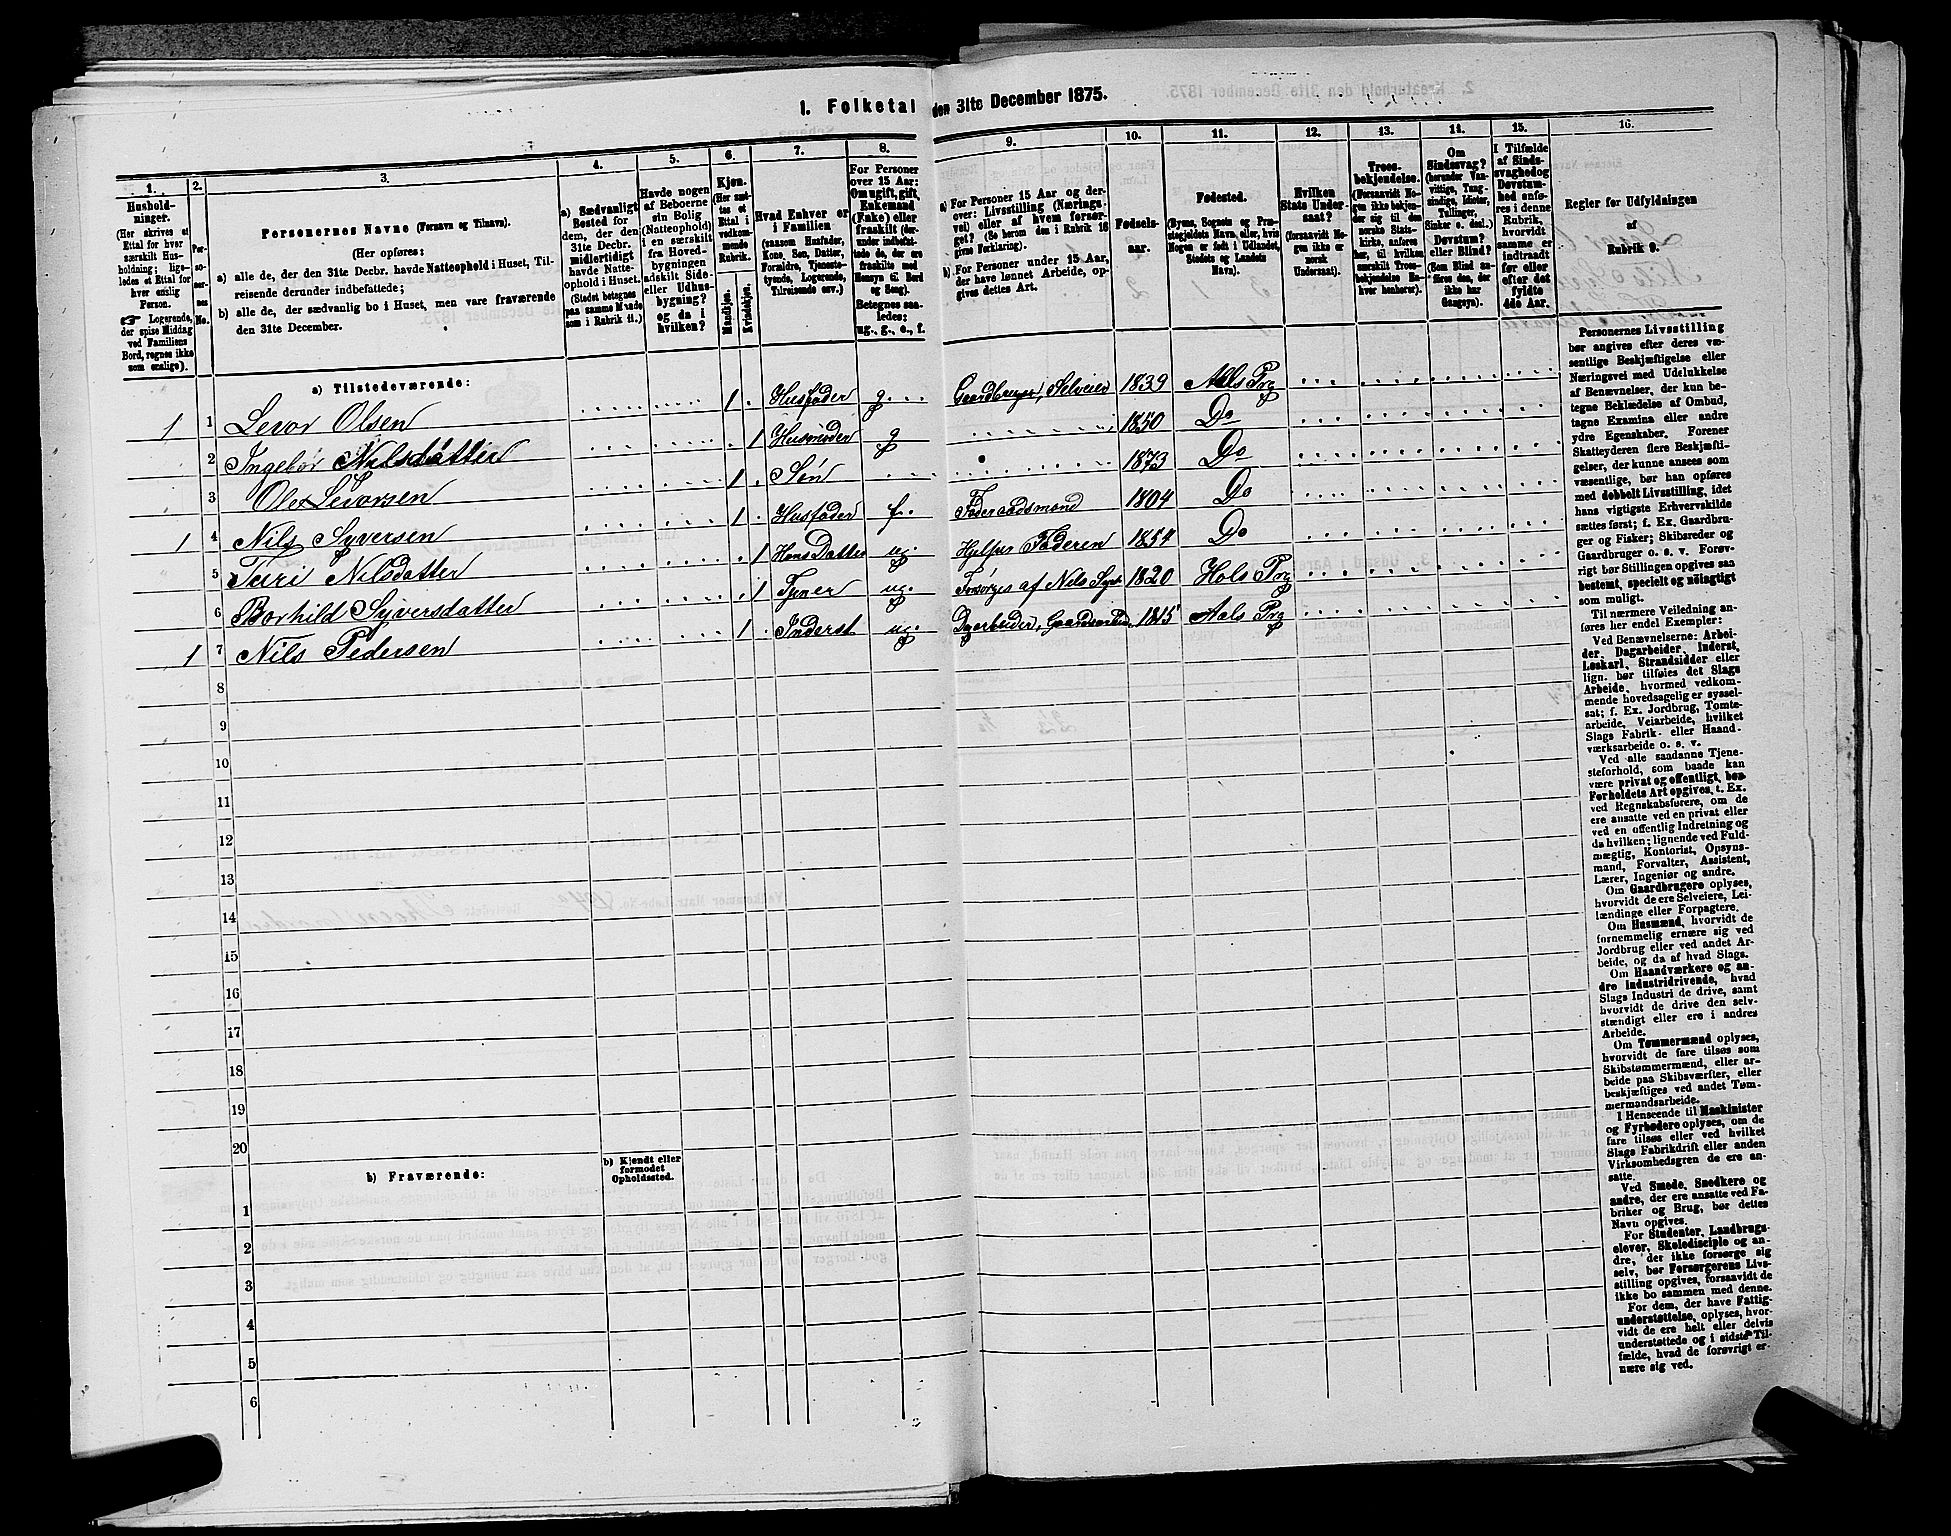 1. Folketal den 31te December 1875.
1. 2. 3. 4. 5. 6. 7. 8. 9. 10. 11. 12. 13. 14. 15. 16.
Husholdninger.
(Her skrives et Ettal for hver særskilt Husholdning; ligeledes et Ettal for hver enslig Person.
☞ Logerende, der spise Middag ved Familiens Bord, regnes ikke som enslige).
Personernes No.
Personernes Navne (Fornavn og Tilnavn).
(Her opføres:
a) alle de, der den 31te Decbr. havde Natteophold i Huset, Tilreisende derunder indbefattede;
b) alle de, der sædvanlig bo i Huset, men vare fraværende den 31te December.
a) Sædvanligt Bosted for dem, der den 31te Decbr. midlertidigt havde Natteophold i Huset. (Stedet betegnes paa samme Maade som i Rubrik 11.)
Havde nogen af Beboerne sin Bolig (Natteophold) i en særskilt fra Hovedbygningen adskilt Side- eller Udhusbygning? og da i hvilken?
Kjøn. (Her sættes et Ettal i vedkommende Rubrik.
Mandkjøn.
Kvindekjøn.
Hvad Enhver er i Familien
(saasom Husfader, Kone, Søn, Datter, Forældre, Tjenestetyende, Logerende, Tilreisende osv.)
For Personer over 15 Aar: Om ugift, gift, Enkemand (Enke) eller fraskilt (derunder indbefattede de, der ere fraskilte med Hensyn til Bord og Seng). Betegnes saaledes: ug., g., e., f.
a) For Personer 15 Aar og derover: Livsstilling (Næringsvei) eller af hvem forsørget? (Se herom den i Rubrik 16 givne Forklaring).
b) For Personer under 15 Aar, der have lønnet Arbeide, opgives dettes Art.
Fødselsaar.
Fødested.
(Byens, Sognets og Præstegjeldets Navn, eller, hvis Nogen er født i Udlandet, Stedets og Landets Navn).
Hvilken Stats Undersaat?
(forsaavidt Nogen ikke er norsk Undersaat).
Troesbekjendelse.
(Forsaavidt Nogen ikke bekjender sig til den norske Statskirke, anføres her, til hvilken særskilt Troesbekjendelse Enhver henhører).
Om Sindssvag? (herunder Vanvittige, Tungsindige, Idioter, Tullinger, Sinker o. desl.) Døvstum? eller Blind? (Som Blind anføres den, der ikke har Gangsyn).
I Tilfælde af Sindssvaghed og Døvstumhed anføres i denne Rubrik, hvorvidt samme er indtraadt før eller efter det fyldte 4de Aar.
Regler for Udfyldningen af Rubrik 9.
a) Tilstedeværende:
1 1 Levor Olsen 1 Husfader g. Gaardbruger, Selveier 1839 Aals Prg
2 Ingebør Nilsdatter 1 Husmoder g 1850 Do
3 Ole Levorsen 1 Søn 1873 Do
1 4 Nils Syversen 1 Husfader f. Føderaadsmand 1804 Do
5 Turi Nilsdatter 1 Hans Datter ug. Hjelper Faderen 1854 Do
6 Borhild Syversdatter 1 Tjener ug. Forsørges af Nils Syv. 1820 Hols Prg
1 7 Nils Pedersen 1 Inderst ug. 1815 Aals Prg
8
9
10
11
12
13
14
15
16
17
18
19
20
b) Fraværende:
b) Kjendt eller formodet Opholdssted.
1
2
3
4
5
6
Personernes Livsstilling
bør angives efter deres væsentlige Beskjæftigelse eller
Næringsvei med Udelukkelse
af Benævnelser, der kun betegne Beklædelse af Ombud,
tagne Examina eller andre
ydre Egenskaber. Forener
Skatteyderen flere Beskjæftigelser, der kunne ansees som
væsentlige, bør han opføres
med dobbelt Livsstilling, idet
hans vigtigste Erhvervskilde
sættes først; f. Ex. Gaardbruger og Fisker; Skibsreder og
Gaardbruger o. s. v. Forøvrigt bør Stillingen opgives saa
bestemt, specielt og nöiagtigt
som muligt.
Til nærmere Veiledning anføres her endel Exempler:
Ved Benævnelserne: Arbeider, Dagarbeider, Inderst,
Løskarl, Strandsidder eller
lign. bør tilføies det Slags
Arbeide, hvormed vedkommende hovedsagelig er sysselsat; f. Ex. Jordbrug, Tomtearbeide, Veiarbeide, hvilket
Slags Fabrik- eller Haandværksarbeide o. s. v.
Ved alle saadanne Tjenesteforhold, som baade kan
være privat og offentligt, bør
Forholdets Art opgives, t. Ex.
ved Regnskabsførere, om de
ere ansatte ved en privat eller
ved en offentlig Indretning og
da hvilken; lignende ved Fuldmægtig, Kontorist, Opsynsmand, Forvalter, Assistent,
Lærer, Ingeniør og andre.
Om Gaardbrugere oplyses,
hvorvidt de ere Selveiere, Leilændinge eller Forpagtere.
Om Husmænd, hvorvidt de
fornemmelig ernære sig ved
Jordbrug eller ved andet Arbeide, og da af hvad Slags.
Om Haandværkere og andre Industridrivende, hvad
Slags Industri de drive, samt
hvorvidt de drive den selvstændigt eller ere i andres
Arbeide.
Om Tømmermænd oplyses,
hvorvidt de fare tilsøs som
Skibstømmermænd, eller arbeide paa Skibsværfter, eller
beskjæftiges ved andet Tømmermandsarbeide.
I Henseende til Maskinister
og Fyrbødere oplyses, om de
fare tilsøs eller ved hvilket
Slags Fabrikdrift eller anden
Virksomhedsgren de ere ansatte.
Ved Smede, Snedkere og
andre, der ere ansatte ved Fabriker og Brug, bør dettes
Navn opgives.
For Studenter, Landbrugselever, Skoledisciple og andre, der ikke forsørge sig
selv, bør Forsørgerens Livsstilling opgives, forsaavidt de
ikke bo sammen med denne.
For dem, der have Fattigunderstøttelse, oplyses, hvorvidt de ere helt eller delvis
understøttede og i sidste Tilfælde, hvad de forøvrigt ernære sig ved.